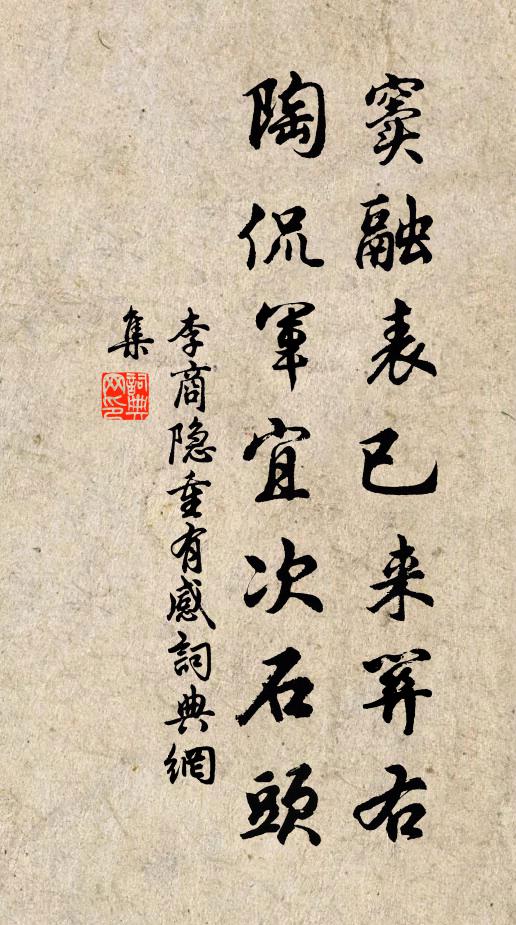 窦融表已来关右
陶侃軍宜次石頭
李商隐重有感詞典網
集
詞典
网印